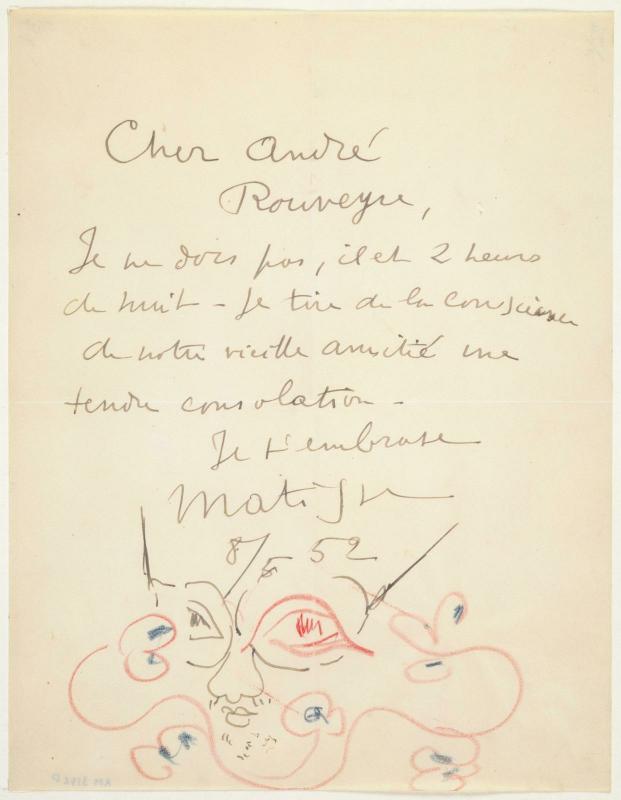 Cher André
Rouveyre,
Je ne dors pas, il et 2 heures
de nuit - Je tire de la conscience
de notre vieille amitié une
tendre consolation -
Je t'embrasse
Matisse
8/5 52